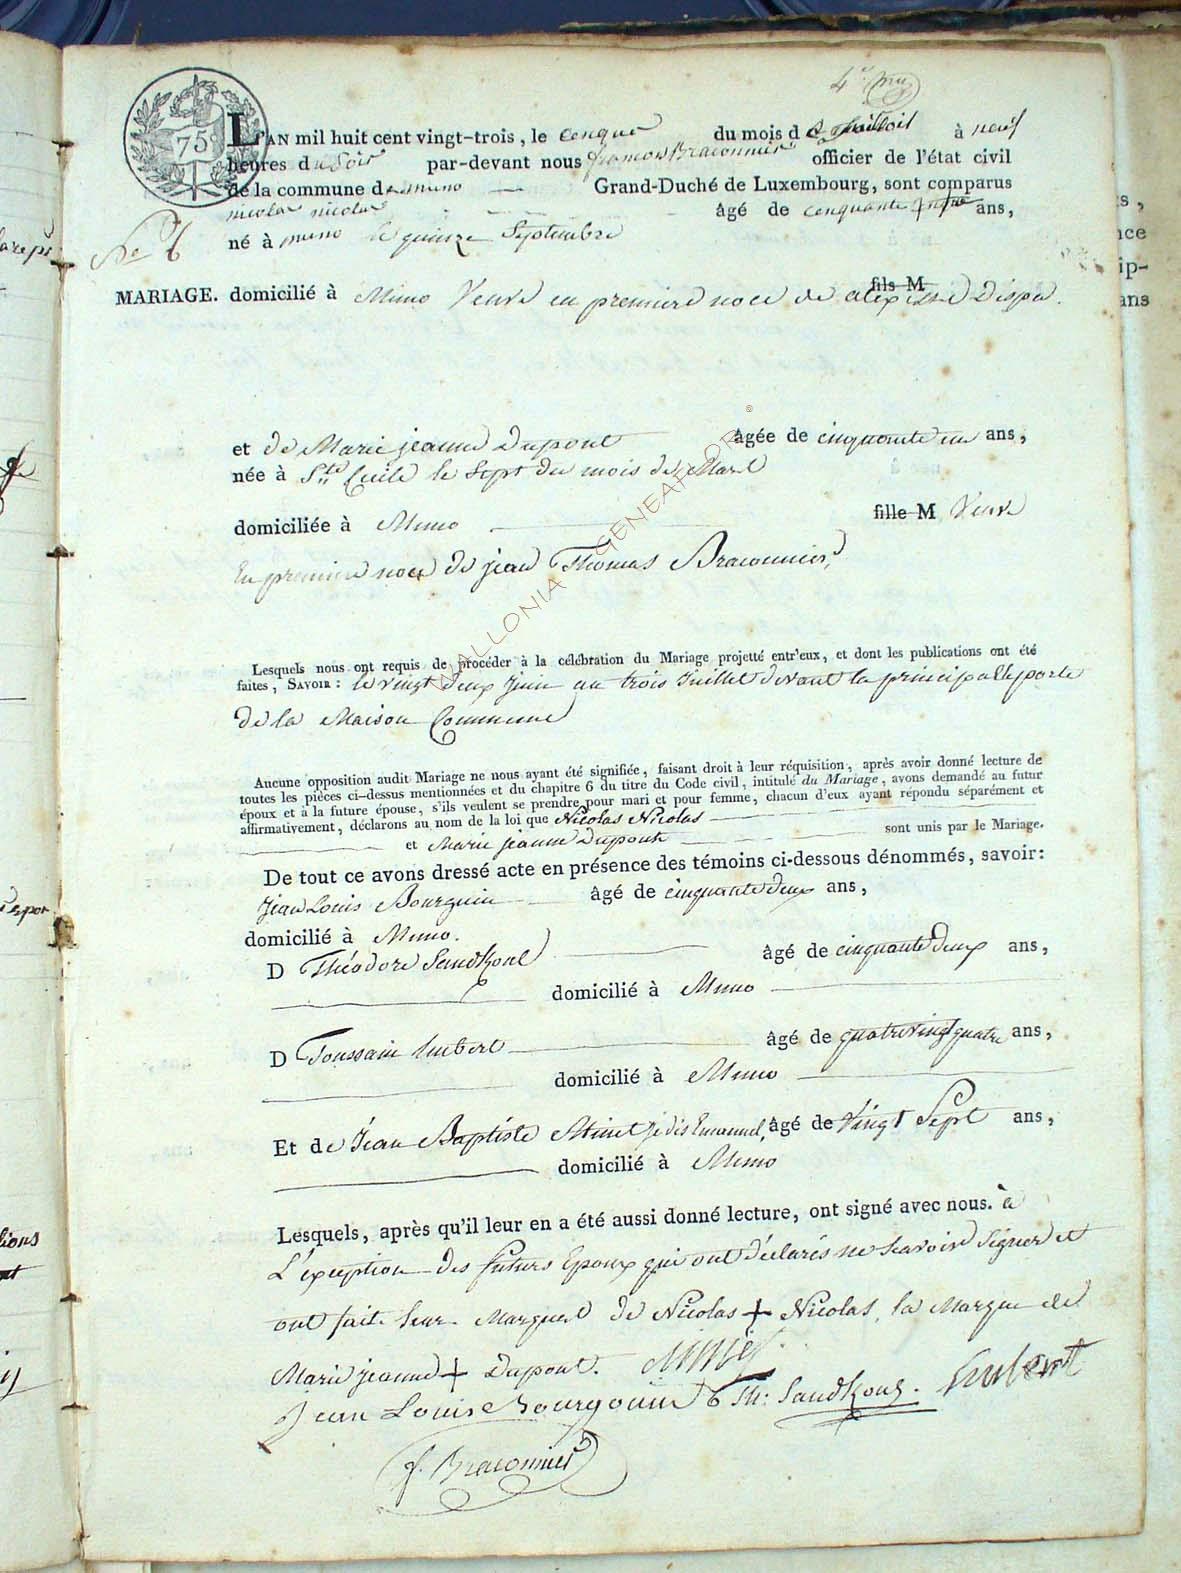 4e
75c
L'AN mil huit cent vingt-trois, le cenque du mois de Juilloit à neuf
heures du Soir par-devant nous francois Braconnier officier de l'état civil
de la commune de muno Grand-Duché de Luxembourg, sont comparus
nicolas nicolas âgé de cenquante ans,
né à muno le quinze Septembre
No 6
MARIAGE. domicilié à Muno fils M Veuve en premiere noce de
et de Marie jeanne Dupont âgée de cinquante un ans,
née à Ste Cecile le Sept du mois de Mars
domiciliée à Muno fille M Veuve
En premiere noce de jean Thomas Braconnier,
Lesquels nous ont requis de procéder à la célébration du Mariage projetté entr'eux, et dont les publications ont été
faites, SAVOIR : le vingt deux Juin au trois Juillet devant la principalle porte
de la Maison Commune
Aucune opposition audit Mariage ne nous ayant été signifiée, faisant droit à leur réquisition, après avoir donné lecture de
toutes les pièces ci-dessus mentionnées et du chapitre 6 du titre du Code civil, intitulé du Mariage, avons demandé au futur
époux et à la future épouse, s'ils veulent se prendre pour mari et pour femme, chacun d'eux ayant répondu séparément et
affirmativement, déclarons au nom de la loi que Nicolas Nicolas
et Marie jeanne Dupont sont unis par le Mariage.
De tout ce avons dressé acte en présence des témoins ci-dessous dénommés, savoir:
Jean Louis Bourguin âgé de cinquante deux ans,
domicilié à Muno.
D Théodore Sandkoul âgé de cinquante deux ans,
domicilié à Muno
D Toussain humbert âgé de quatre vingt quatre ans,
domicilié à Muno
Et de Jean Baptiste Minet je dis Emanuel, âgé de Vingt Sept ans,
domicilié à Muno
Lesquels, après qu'il leur en a été aussi donné lecture, ont signé avec nous. à
L'exception des futurs Epoux qui ont déclarés ne scavoir Signer et
ont fait leur Marques de Nicolas + Nicolas, la Marque de
Marie jeanne + Dupont. Minet
Jean Louis Bourgouin Th: Sandkoul. humbert
f. Braconnier
WALLONIA GENEAFLOR ©